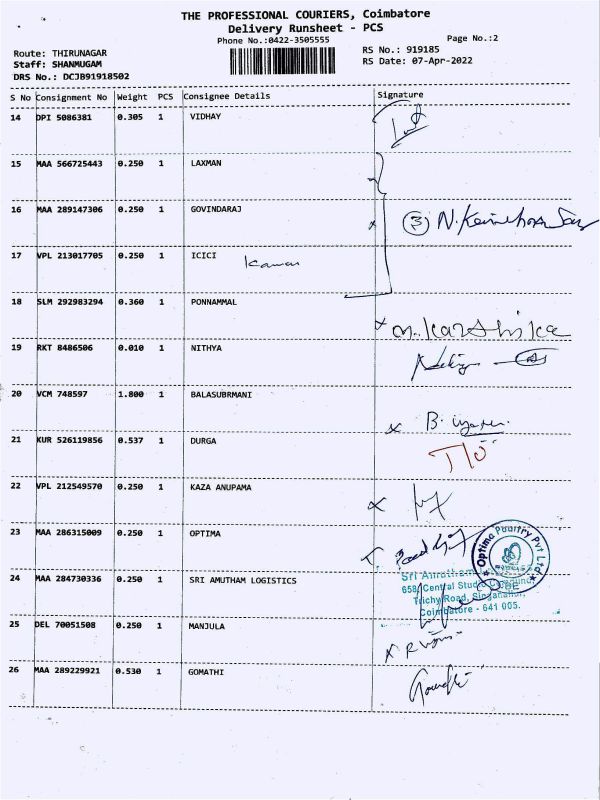 THE PROFESSIONAL COURIERS, Coimbatore
Delivery Runsheet - PCS
Phone No.:0422-3505555
Page No.:2
Route: THIRUNAGAR
RS No.: 919185
Staff: SHANMUGAM
RS Date: 07-Apr-2022
DRS No.: DCJB91918502
S No Consignment No Weight PCS Consignee Details Signature
14 DPI 5086381 0.305 1 VIDHAY
15 MAA 566725443 0.250 1 LAXMAN
16 MAA 289147306 0.250 1 GOVINDARAJ
3 N.
17 VPL 213017705 0.250 1 ICICI
18 SLM 292983294 0.360 1 PONNAMMAL
m. Karthika
19 RKT 8486506 0.010 1 NITHYA
20 VCM 748597 1.800 1 BALASUBRMANI
B.
21 KUR 526119856 0.537 1 DURGA
22 VPL 212549570 0.250 1 KAZA ANUPAMA
23 MAA 286315009 0.250 1 OPTIMA
Optima Poultry Pvt Ltd
24 MAA 284730336 0.250 1 SRI AMUTHAM LOGISTICS
Sri Amutham
658, Central Studio
Trichy Road, Singanallur,
Coimbatore - 641 005.
25 DEL 70051508 0.250 1 MANJULA
26 MAA 289229921 0.530 1 GOMATHI